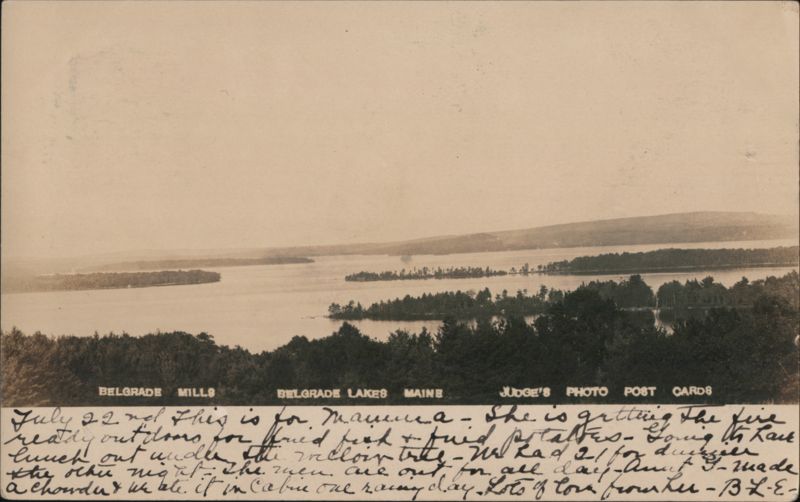 BELGRADE MILLS BELGRADE LAKES MAINE JUDGE'S PHOTO POST CARDS
July 22nd This is for Mamma - She is getting the fire
ready outdoors for fried fish & fried potatoes - Going to have
lunch out under the willow tree - We had 21 for dinner
the other night - The men are out for all day - Aunt I - made
a chowder & we ate it in cabin one rainy day - Lots of love from her - B-L-E-